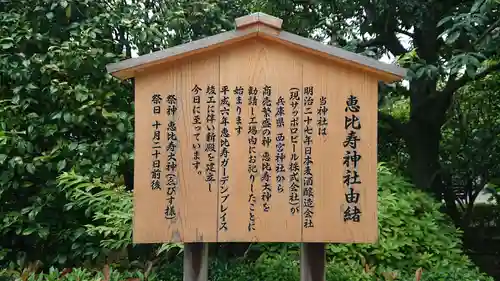 恵比寿神社由緒
当神社は
明治二十七年日本麦酒醸造会社
(現サッポロビール株式会社)が
兵庫県 西宮神社から
商売繁盛の神 恵比寿大神を
勧請し工場内に祀ったことに
始まります
平成六年恵比寿ガーデンプレイス
竣工に伴い新殿を建立
今日に至っています。
祭神 恵比寿大神(ゑびす様)
祭日 十月二十日前後